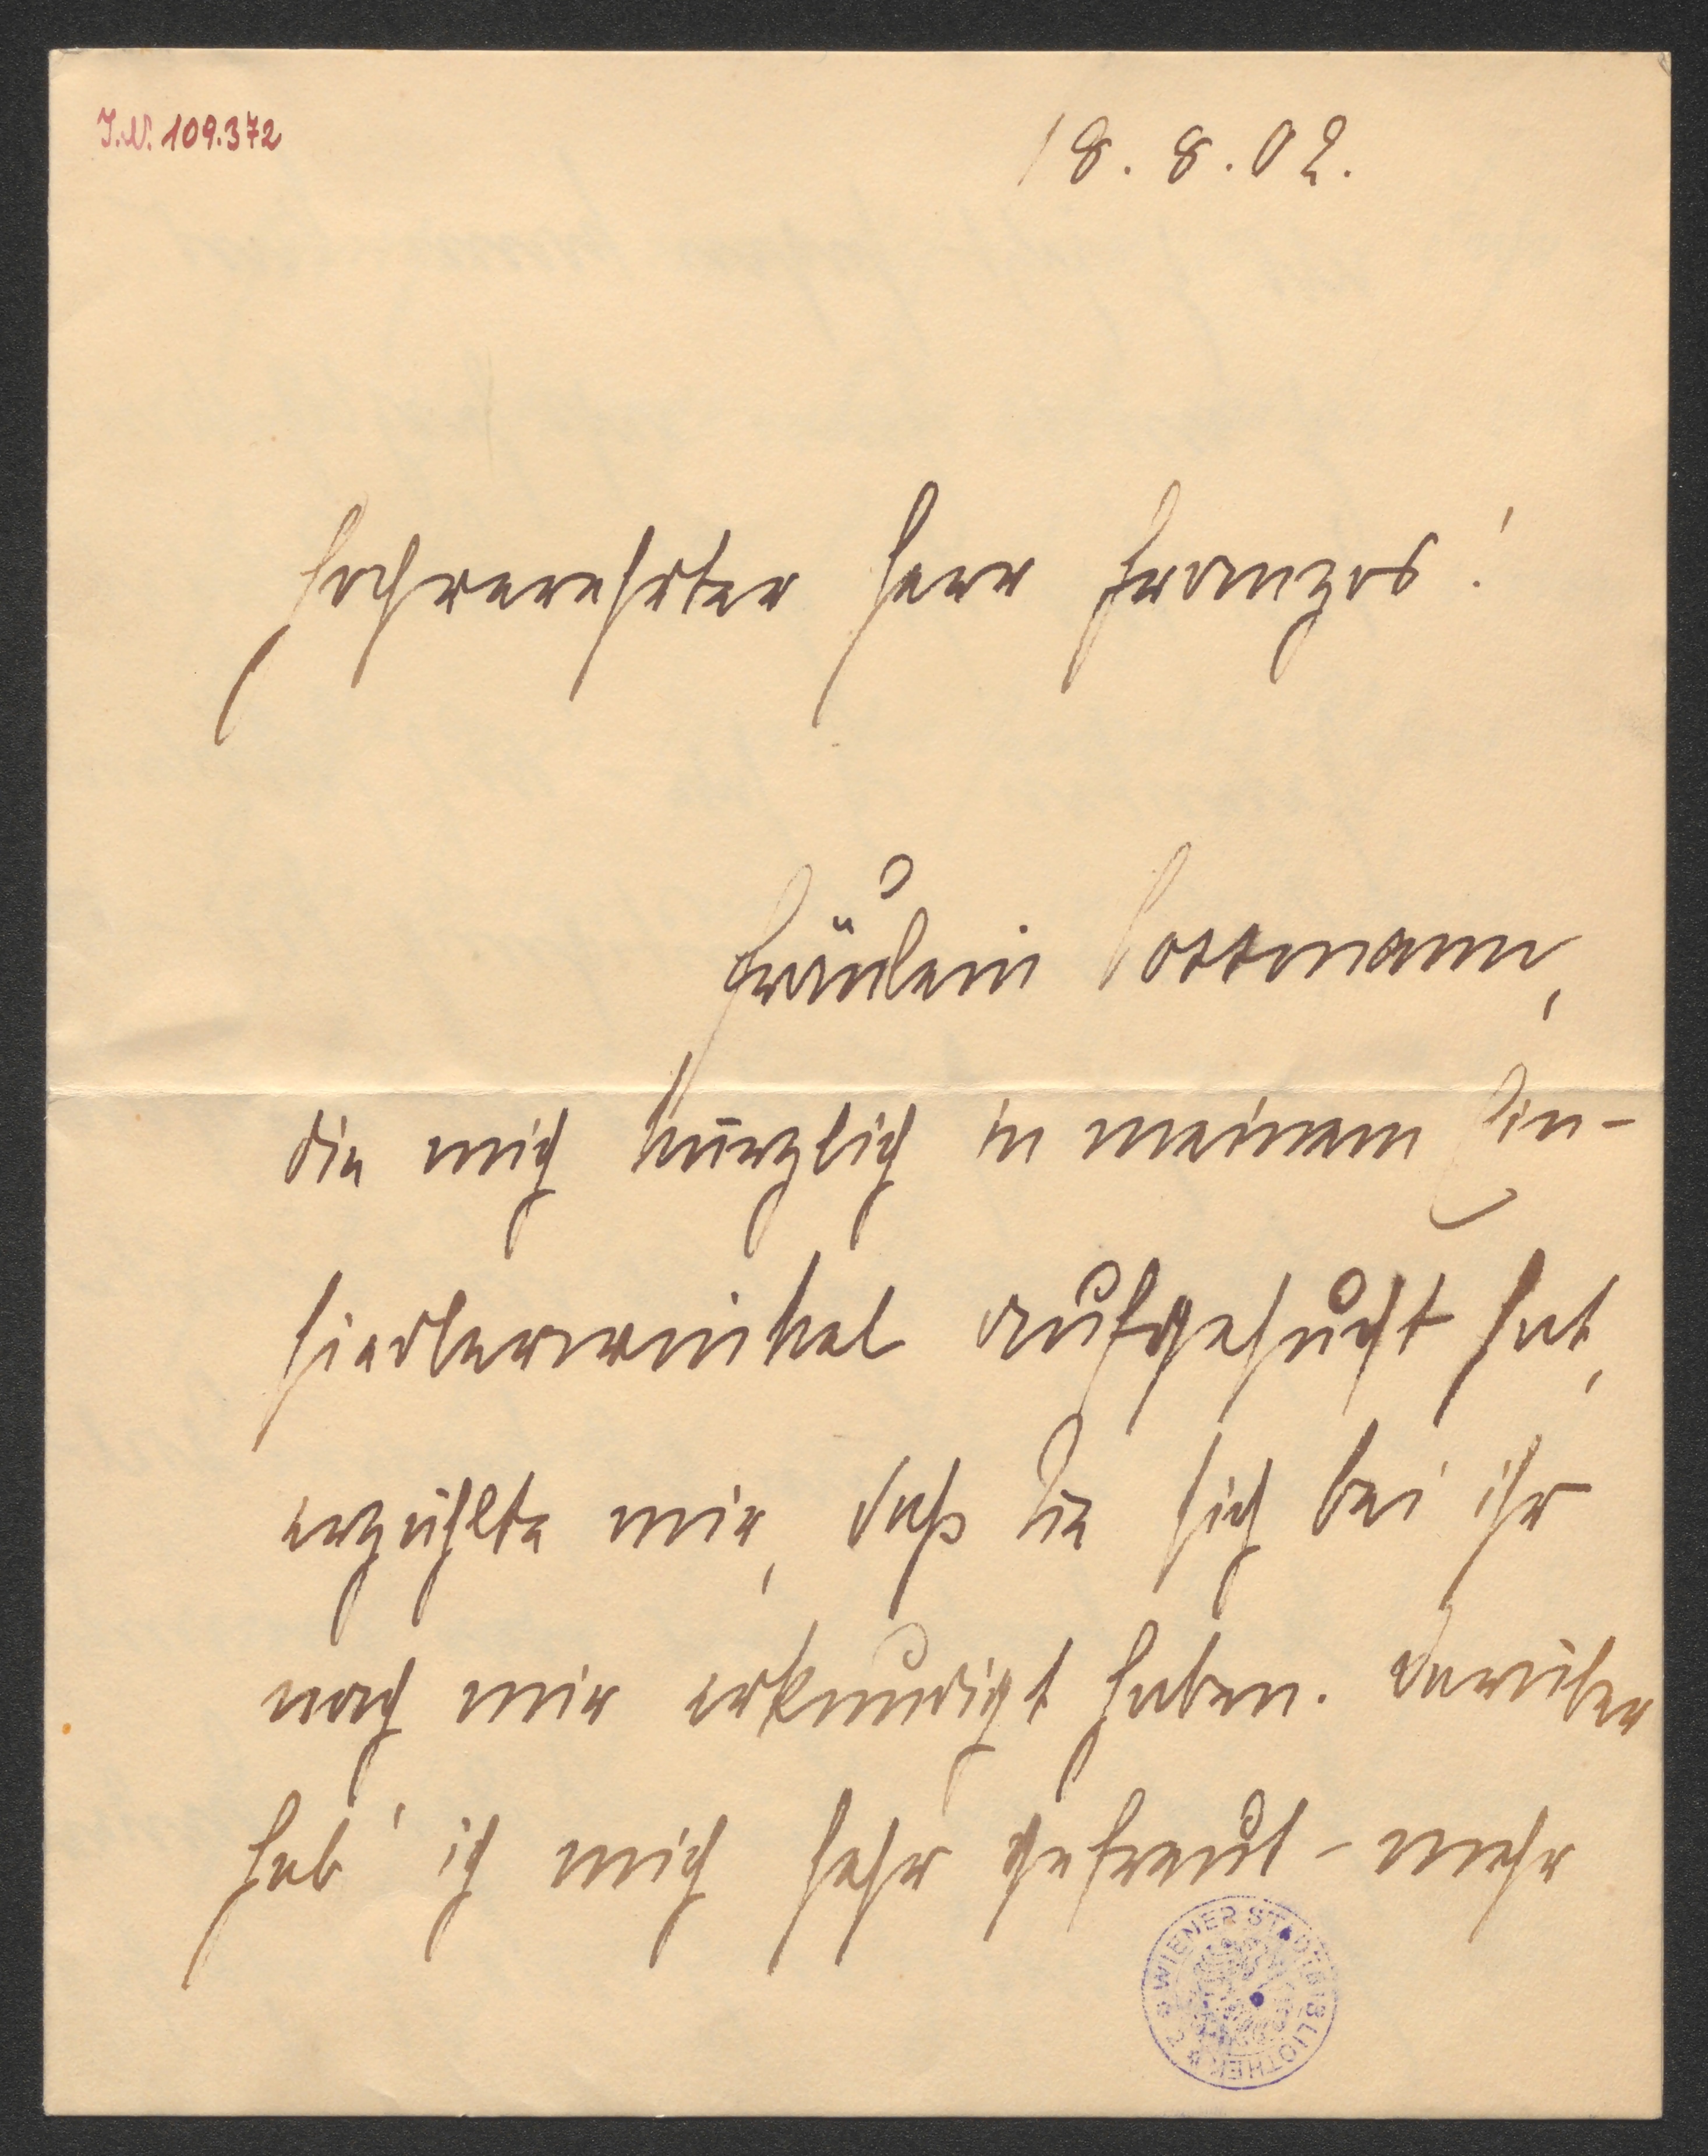 J.N. 109.372
18. 8. 02.
Hochverehrter Herr Franzos!
Fräulein
die mich kürzlich in meinem Ein-
siedlerwinkel aufgesucht hat,
erzählte mir, daß Sie sich bei ihr
nach mir erkundigt haben. Darüber
hab' ich mich sehr gefreut – mehr
WIENER STADTBIBLIOTHEK